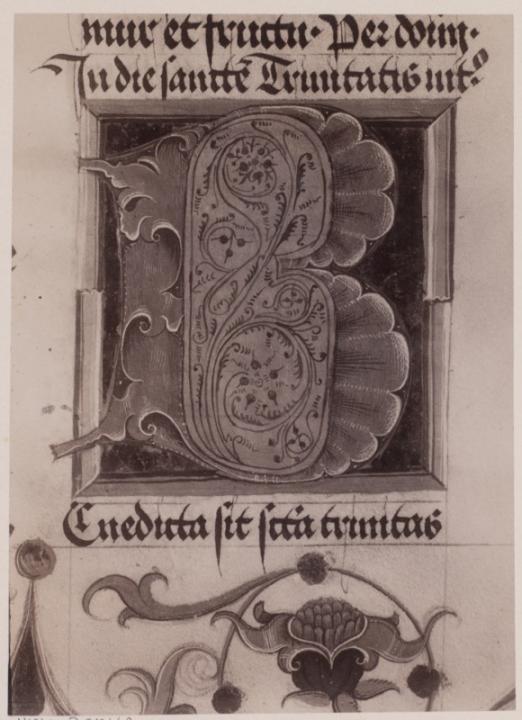 mur et fructu. Per domī.
In die sancte Trinitatis int.º
B
Enedicta sit sctā trinitas